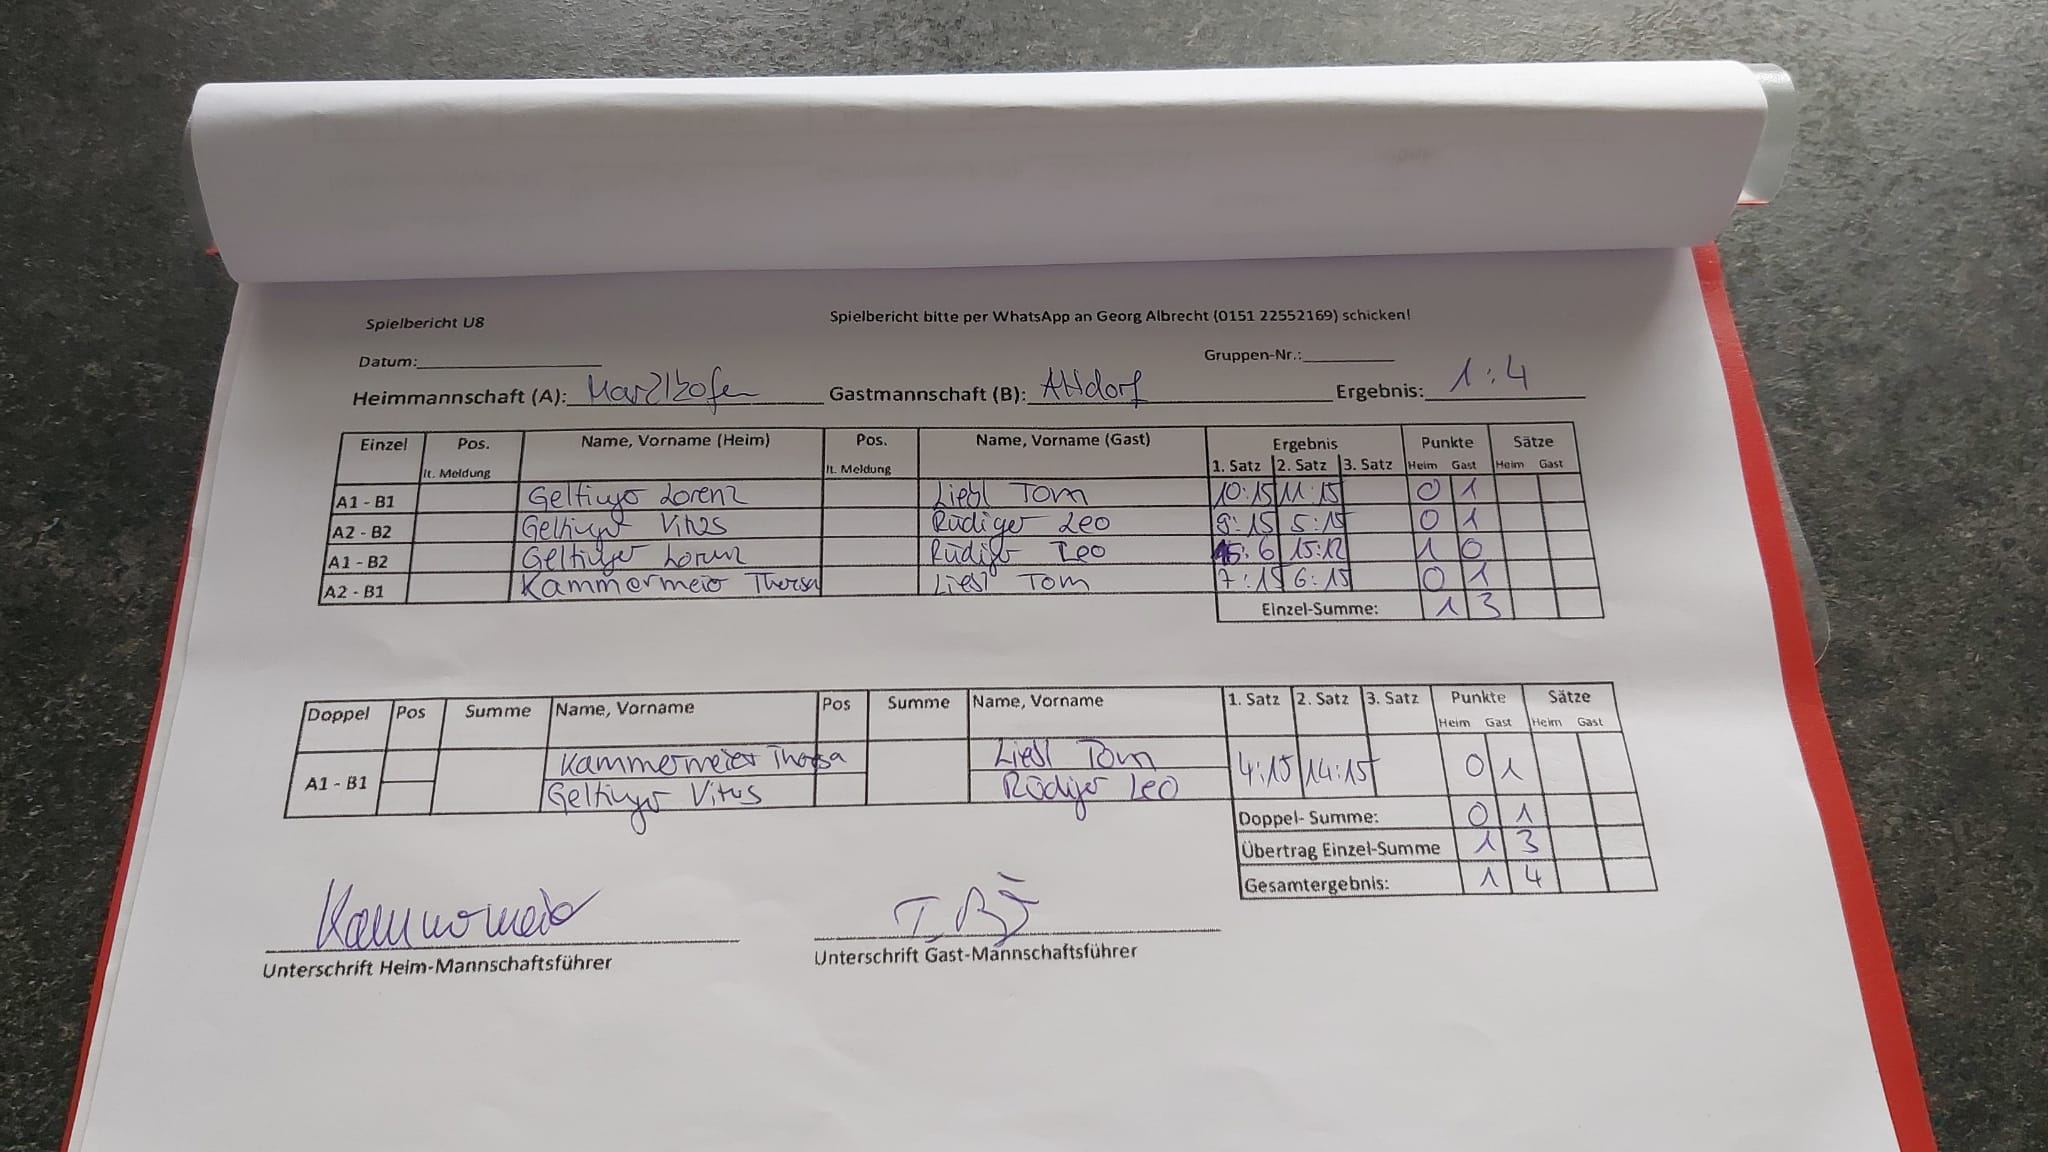 Spielbericht U8 Spielbericht bitte per WhatsApp an Georg Albrecht (0151 22552169) schicken!
Datum: Gruppen-Nr.:
Heimmannschaft (A): Marzlhofen Gastmannschaft (B): Altdorf Ergebnis: 1:4
Einzel Pos. Name, Vorname (Heim) Pos. Name, Vorname (Gast) Ergebnis Punkte Sätze
lt. Meldung lt. Meldung 1. Satz 2. Satz 3. Satz Heim Gast Heim Gast
A1 - B1 Geltinger Lorenz Liebl Tom 10:15 11:15 0 1
A2 - B2 Geltinger Vitus Rüdiger Leo 9:15 5:15 0 1
A1 - B2 Geltinger Lorenz Rüdiger Leo 15:6 15:12 1 0
A2 - B1 Kammermeier Theresa Liebl Tom 7:15 6:15 0 1
Einzel-Summe: 1 3
Doppel Pos Summe Name, Vorname Pos Summe Name, Vorname 1. Satz 2. Satz 3. Satz Punkte Sätze
Heim Gast Heim Gast
Kammermeier Theresa Liebl Tom
A1 - B1 4:15 14:15 0 1
Geltinger Vitus Rüdiger Leo
Doppel- Summe: 0 1
Übertrag Einzel-Summe 1 3
Gesamtergebnis: 1 4
Kammermeier
Unterschrift Heim-Mannschaftsführer Unterschrift Gast-Mannschaftsführer